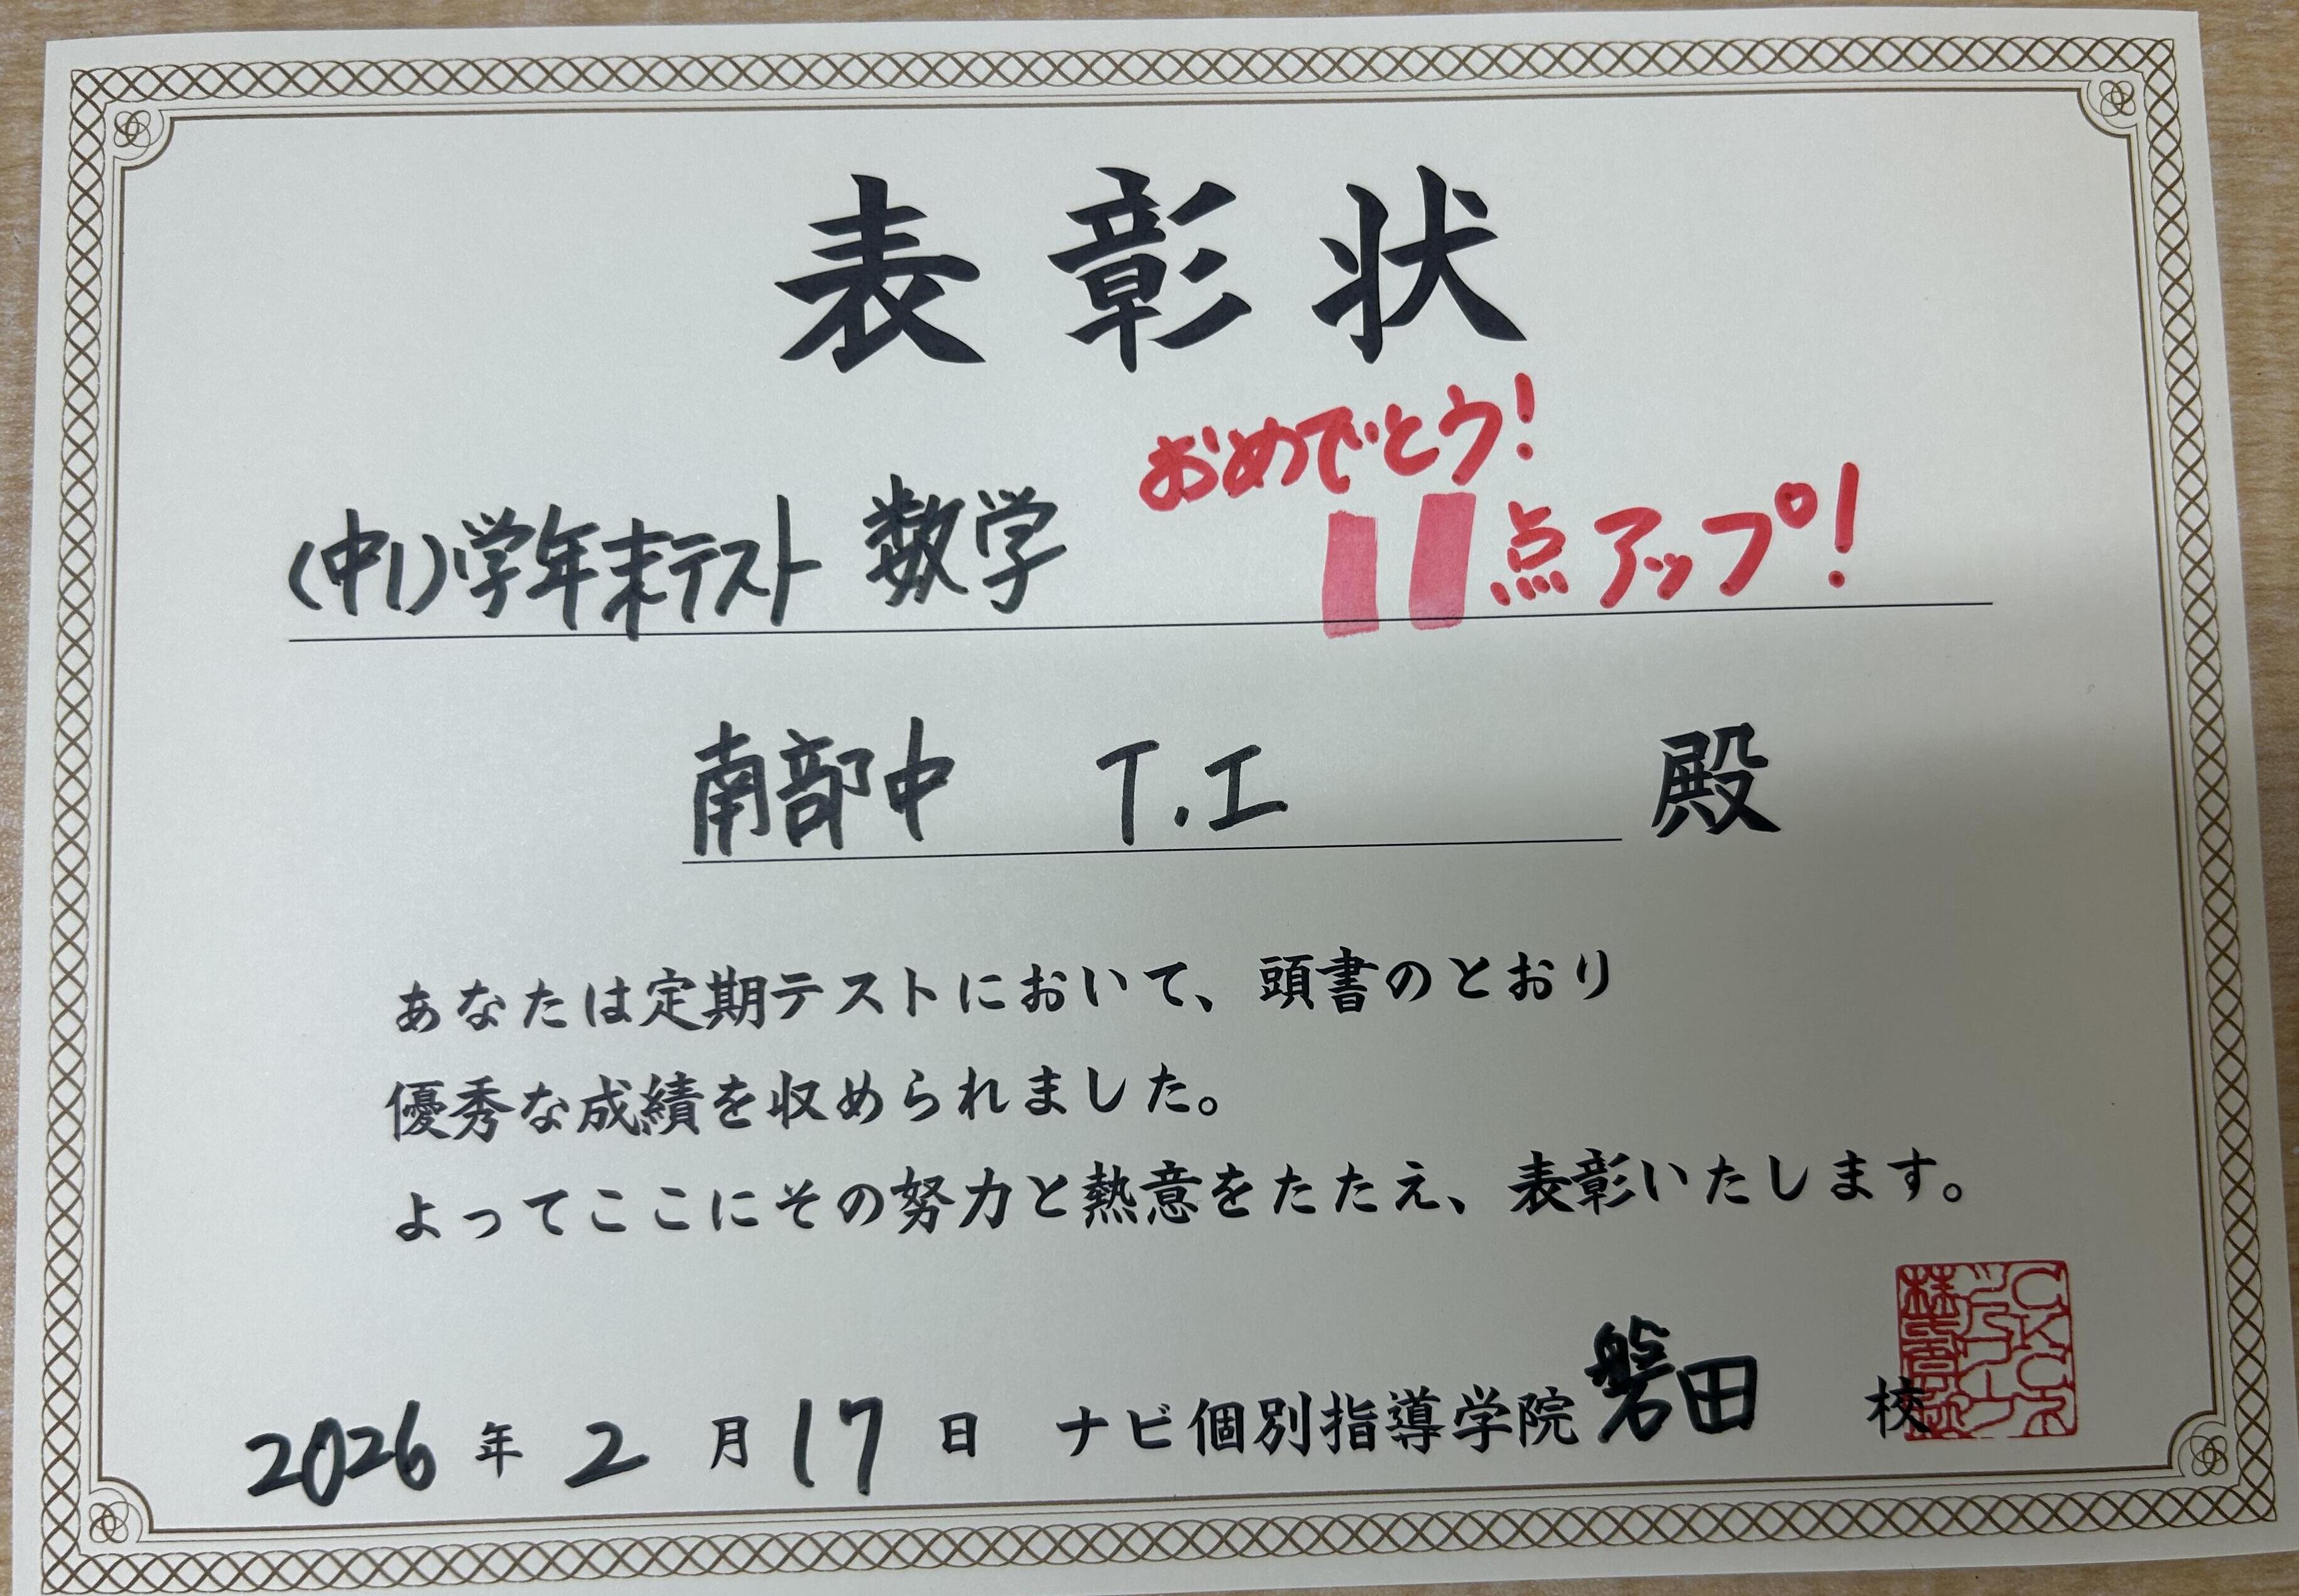 表彰状
おめでとう!
(中1)学年末テスト 数学 11点アップ!
南部中 T.I 殿
あなたは定期テストにおいて、頭書のとおり
優秀な成績を収められました。
よってここにその努力と熱意をたたえ、表彰いたします。
2026年2月17日 ナビ個別指導学院磐田校